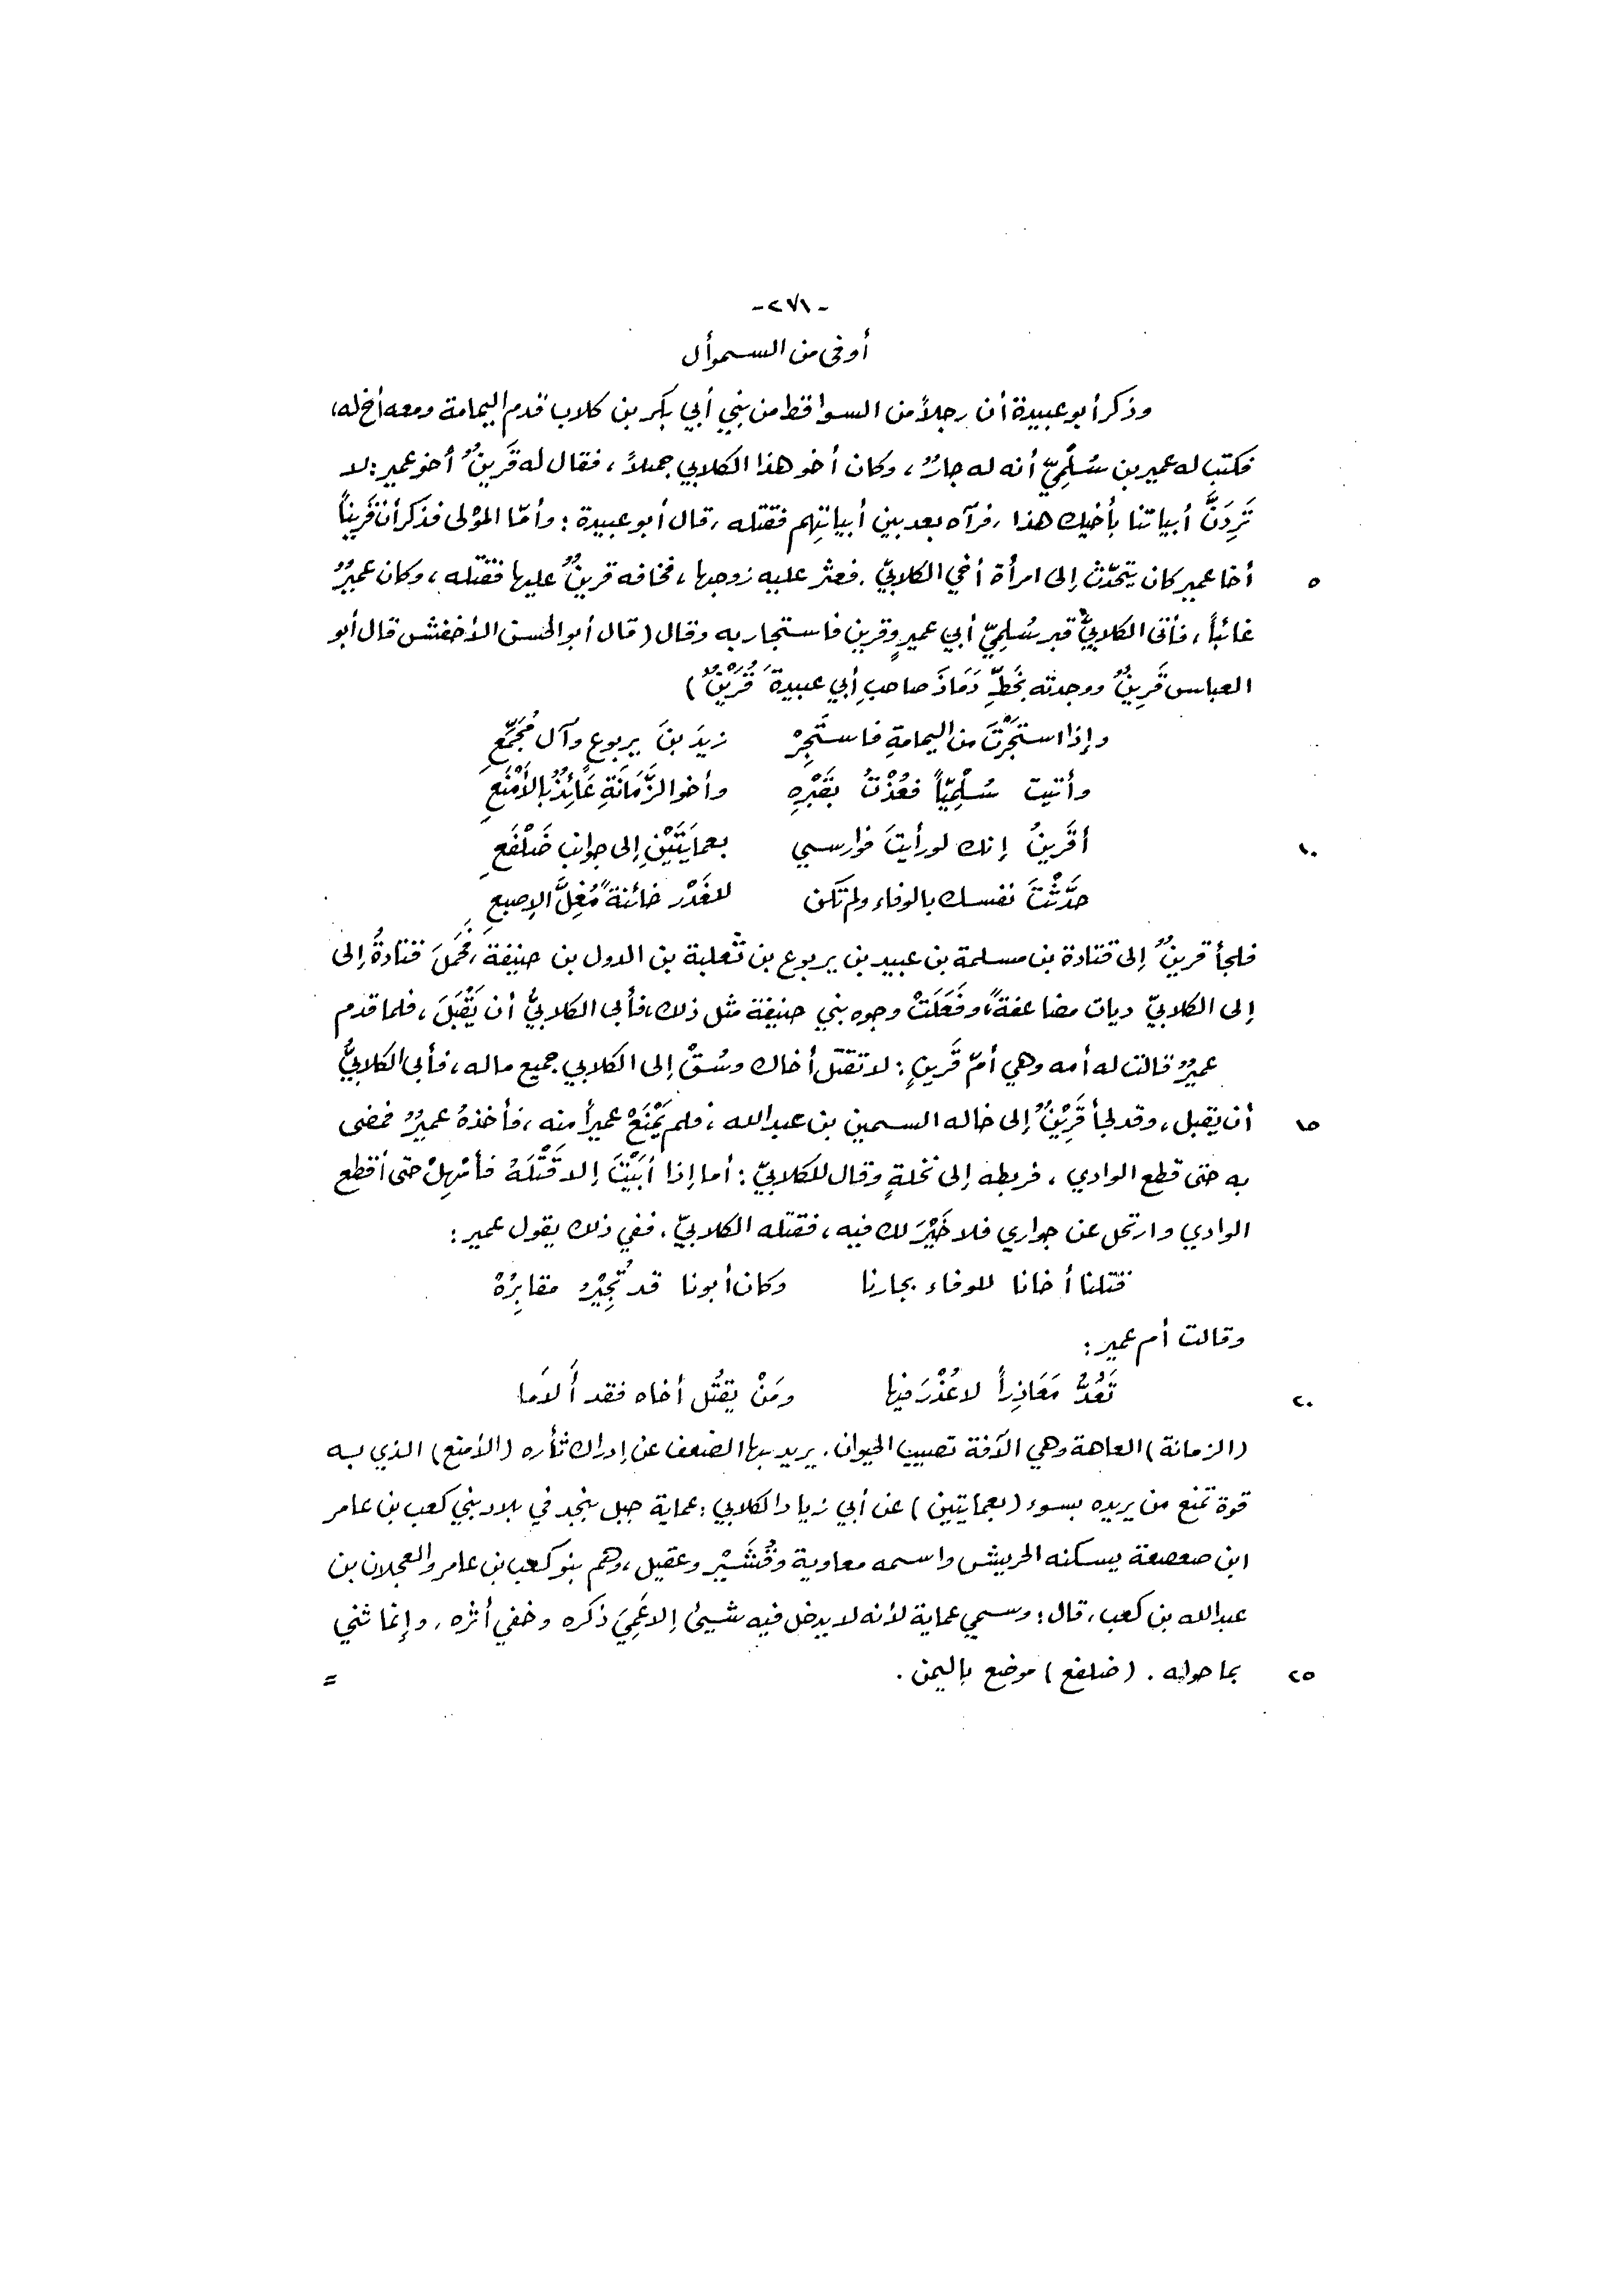 -٢٧١-
أوفى من السموأل
وذكر أبو عبيدة أن رجلاً من السواقط من بني أبي بكر بن كلاب قدم اليمامة ومعه أخ له،
فكتب له عمير بن سُلْمِيّ أنه له جارٌ، وكان أخو هذا الكلابي جميلاً، فقال له قَرِينٌ أخو عمير: لا
تَرِدَنَّ أبياتنا بأخيك هذا، فرآه بعد بين أبياتِهم فقتله، قال أبو عبيدة: وأمّا المولى فذكر أن قَرِيناً
٥ أخا عمير كان يتحدّث إلى امرأة أخي الكلابيّ، فعثر عليه زوجها، فخافه قرينٌ عليها فقتله، وكان عميرٌ
غائباً، فأتى الكلابيُّ قبر سُلمِيّ أبي عميرٍ وقرينٍ فاستجار به وقال (قال أبو الحسن الأخفش قال أبو
العباس قَرِينٌ ووجدته بخَطِّ دَمَاذَ صاحبِ أبي عبيدةَ قُرَيْنٌ)
وإذا استَجَرْتَ من اليمامةِ فاستَجِرْ زيدَ بنَ يربوعٍ وآل مُجَمِّعِ
وأتيت سُلْمِيّاً فعُذْتُ بقَبْرِهِ وأخو الزَّمَانَةِ عَائِذٌ بالأَمْنَعِ
١٠ أقَرِينُ إنك لو رأيتَ فوارسي بعمايَتَيْنِ إلى جوانب ضَلْفَعِ
حدَّثْتَ نفسك بالوفاء ولم تكن للغَدْر خائنةً مُغِلَّ الإصبعِ
فلجأ قرينٌ إلى قتادة بن مسلمة بن عبيد بن يربوع بن ثعلبة بن الدول بن حنيفة، فحُملَ قتادةُ إلى
إلى الكلابيّ ديات مضاعفةً، وفَعَلَتْ وجوه بني حنيفة مثل ذلك، فأبى الكلابيُّ أن يَقْبَلَ، فلما قدم
عميرٌ قالت له أمه وهي أمّ قَرِينٍ: لا تقتل أخاك وسُقْ إلى الكلابي جميع ماله، فأبى الكلابيُّ
١٥ أن يقبل، وقد لجأ قَرِيْنٌ إلى خاله السمين بن عبد الله، فلم يَمْنَعْ عميراً منه، فأخذهُ عميرٌ فمضى
به حتى قطع الوادي، فربطه إلى نخلةٍ وقال للكلابيّ: أما إذا أبَيْتَ إلا قَتْلَهُ فأمْهِلْ حتى أقطع
الوادي وارتحل عن جواري فلا خَيْرَ لك فيه، فقتله الكلابيّ، ففي ذلك يقول عمير:
قتلنا أخانا للوفاء بجارنا وكان أبونا قد تُجِيْرُ مقابِرُهْ
وقالت أم عمير:
٢٠ تَعُدُّ مَعَاذِراً لا عُذْرَ فيها ومَنْ يقتُل أخاه فقد أَلامَا
(الزمانة) العاهة وهي الآفة تصيب الحيوان، يريد بها الضعف عن إدراك ثأره (الأمنع) الذي له
قوة تمنع من يريده بسوء (بعمايتين) عن أبي زياد الكلابي: عماية جبل بنجد في بلاد بني كعب بن عامر
ابن صعصعة يسكنه الحريش واسمه معاوية وقُشَيْر وعقيل، وهم بنو كعب بن عامر والعجلان بن
عبد الله بن كعب، قال: وسمي عماية لأنه لا يدخل فيه شيئ إلا عَمِيَ ذكره وخفي أثره، وإنما ثني
٢٥ بما حوله. (ضلفع) موضع باليمن. =